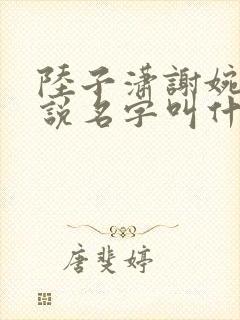 陸子瀟謝婉
說名字叫什
唐斐婷